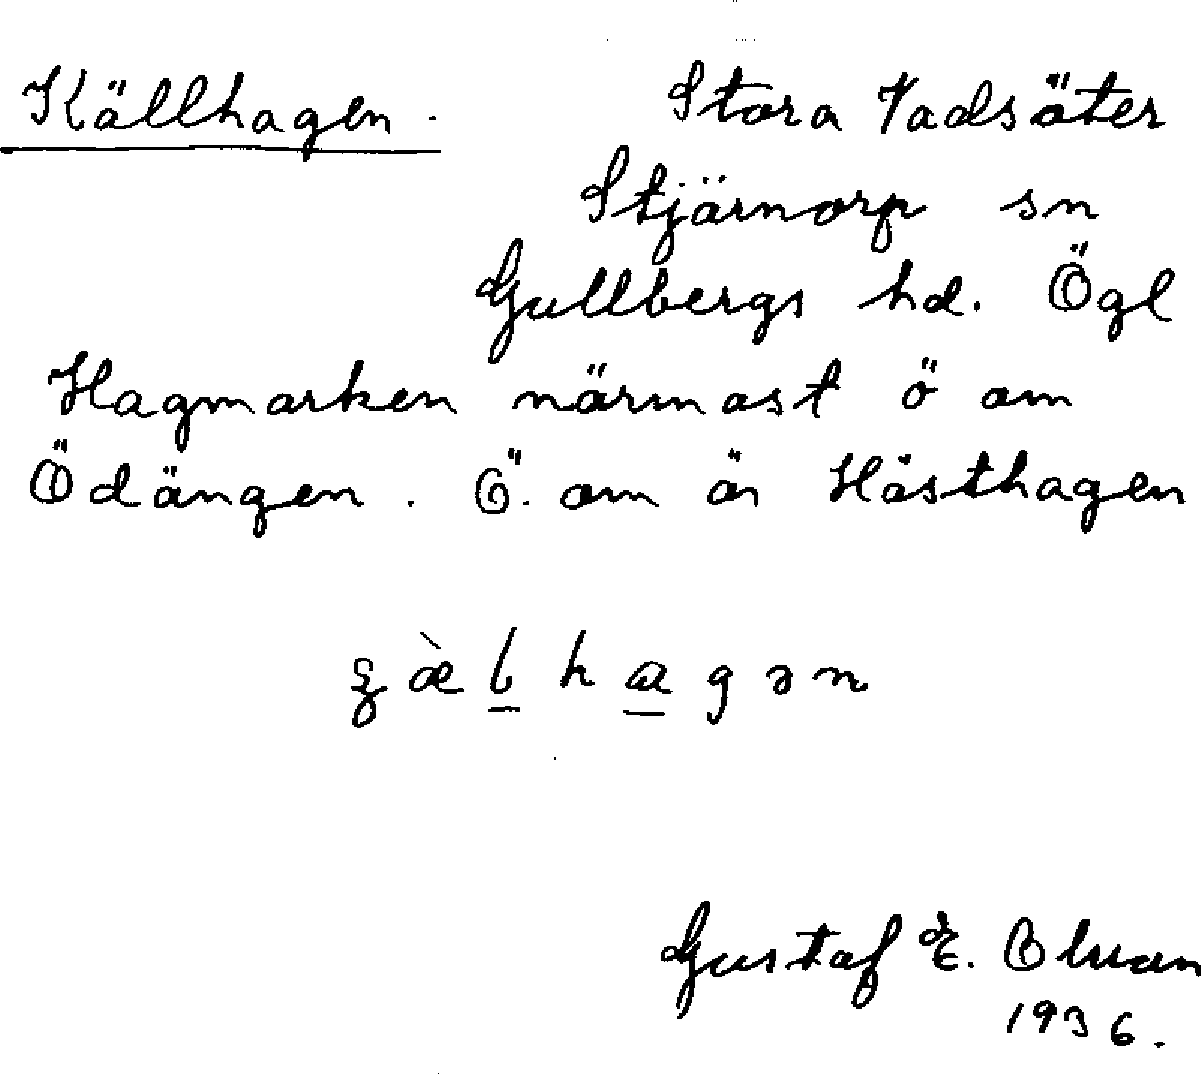 Källhagen. Stora Vadsäter
Stjärnorp sn
Gullbergs hd. Ögl
Hagmarken närmast ö om
Ödängen. Ö. om är Hästhagen
hagən
Gustaf E. Olsson
1936.